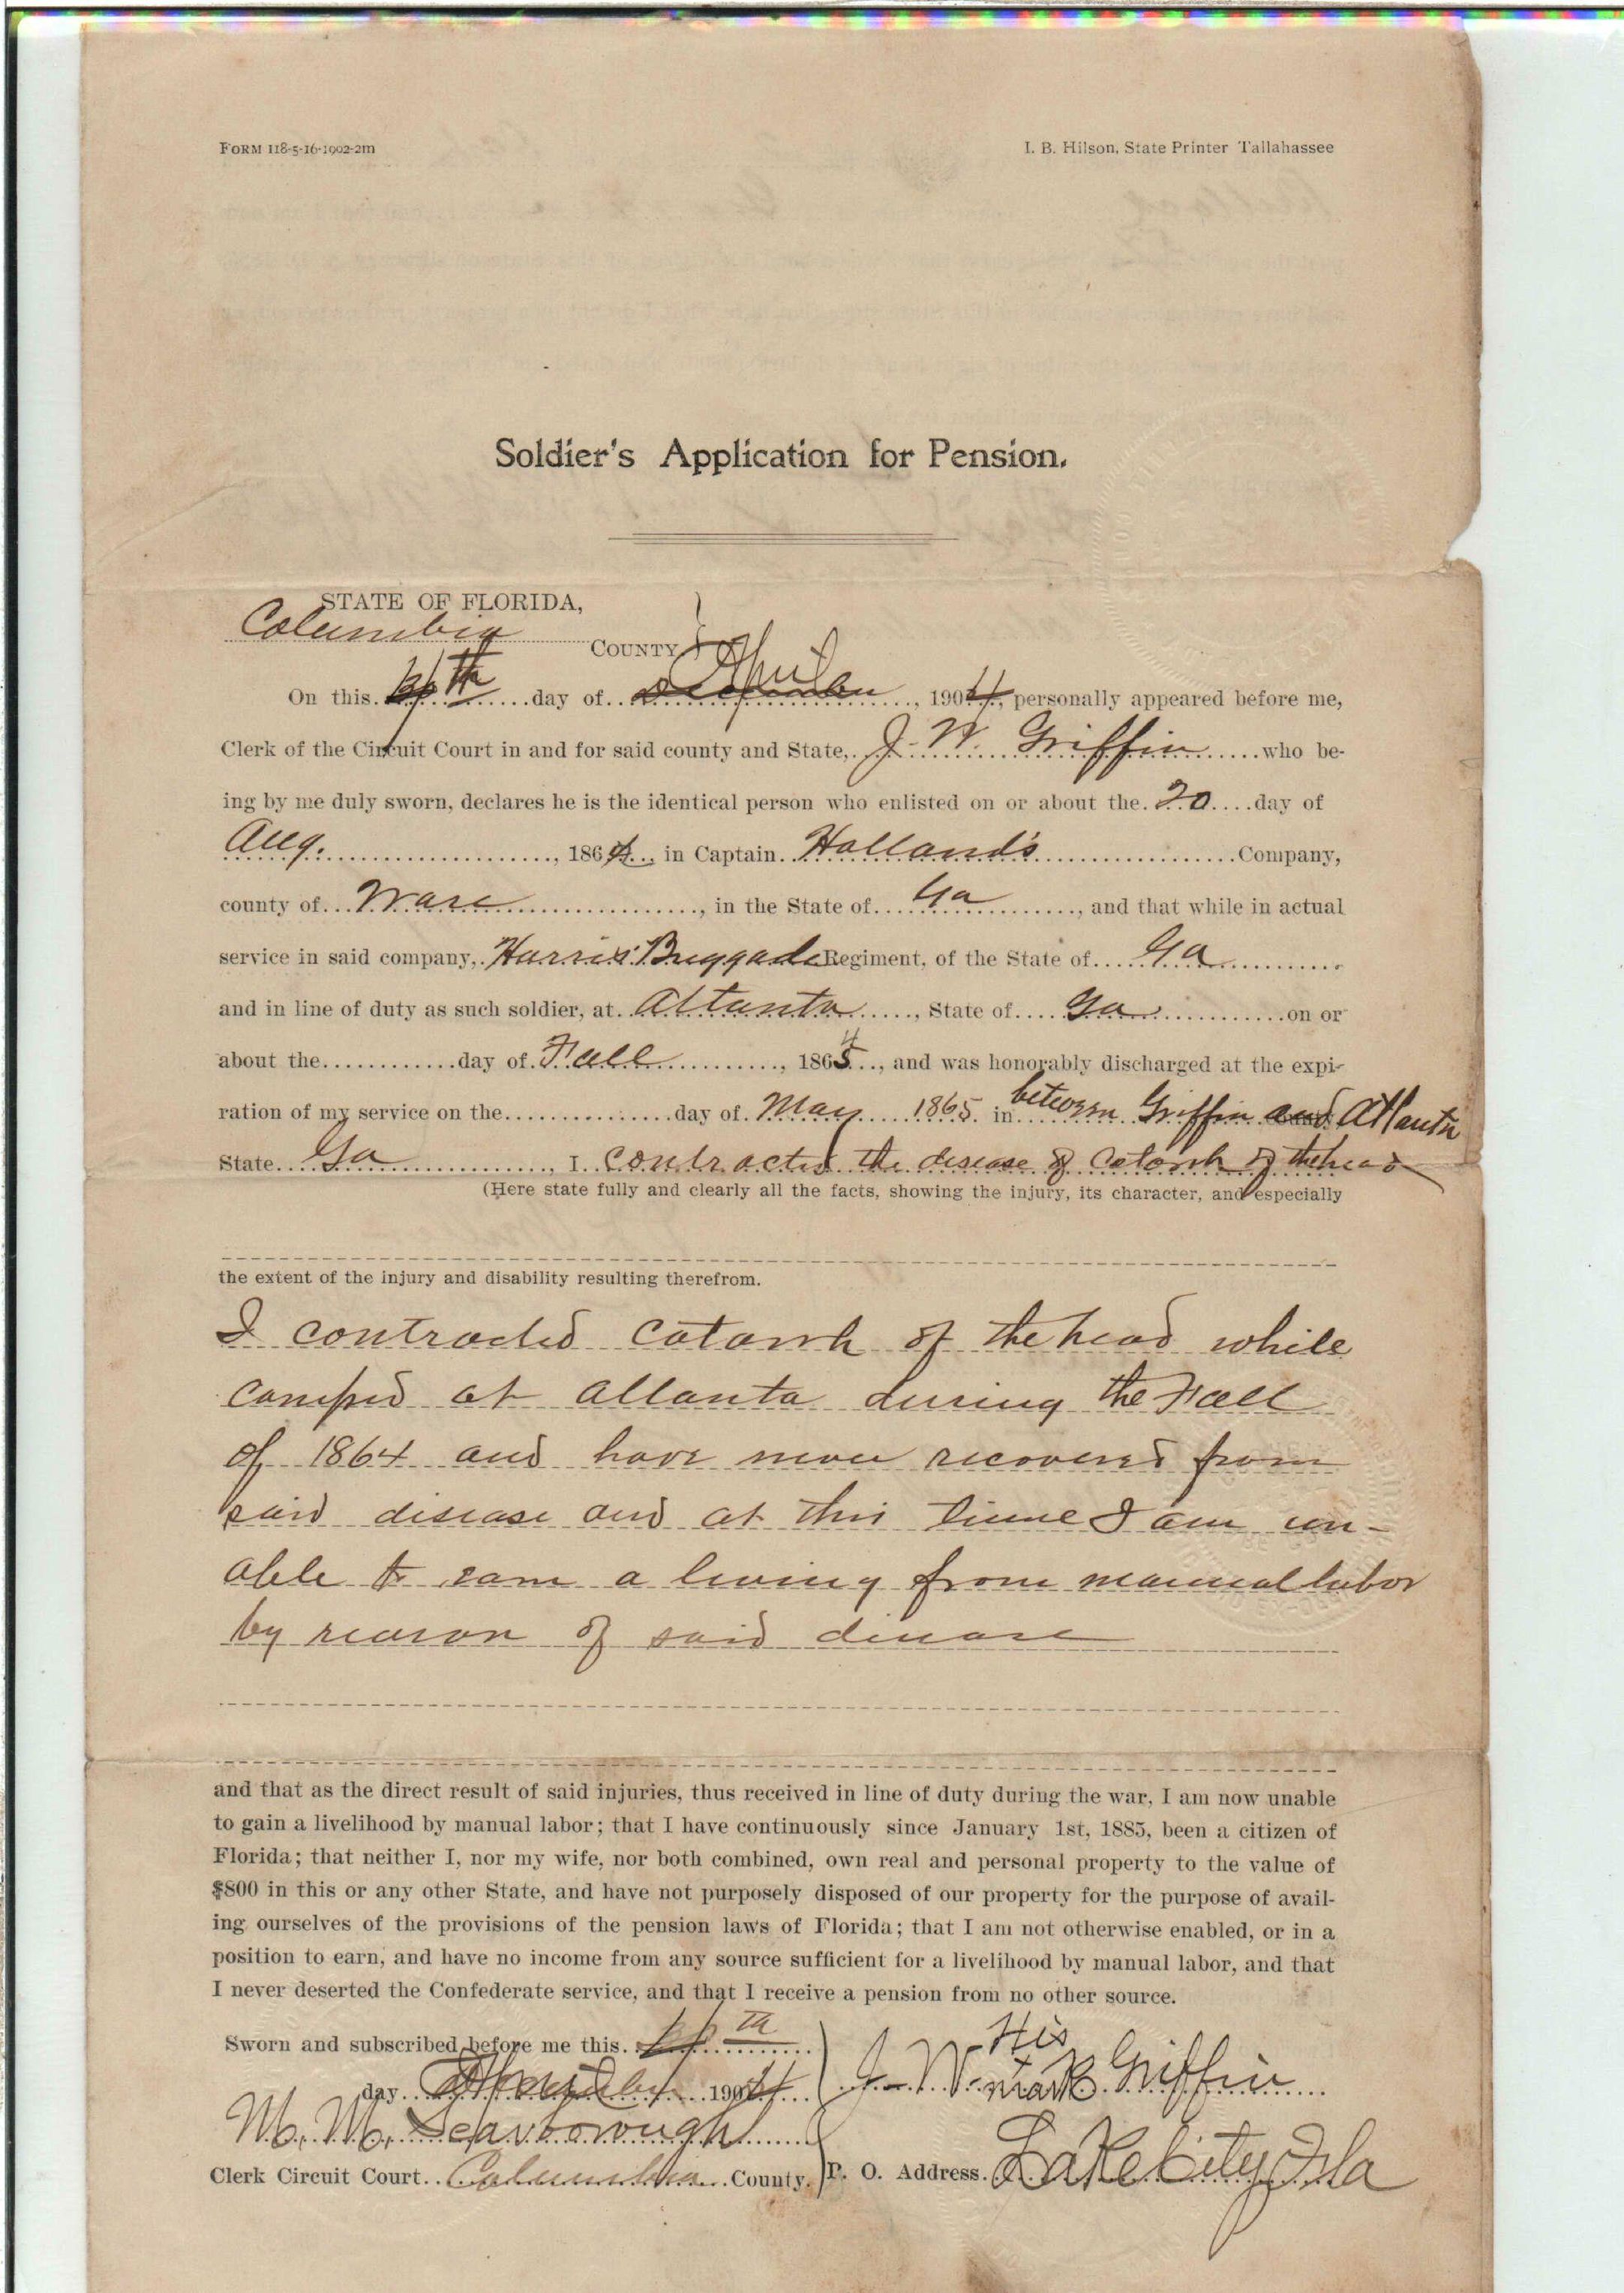 FORM 118-5-16-1902-2m
I. B. Hilson, State Printer Tallahassee
Soldier's Application for Pension.
STATE OF FLORIDA,
Columbia COUNTY
On this th day of April, 1904, personally appeared before me,
Clerk of the Circuit Court in and for said county and State, J. W. Griffin who be-
ing by me duly sworn, declares he is the identical person who enlisted on or about the 20 day of
Aug. , 1864, in Captain Holland's Company,
county of Ware, in the State of Ga, and that while in actual
service in said company, Harris Buggade Regiment, of the State of Ga
and in line of duty as such soldier, at Atlanta, State of Ga on or
about the day of Fall, 1864, and was honorably discharged at the expi-
ration of my service on the day of May 1865 in between Griffin and Atlanta
State Ga, I contracted the disease of Catarrh of the head
(Here state fully and clearly all the facts, showing the injury, its character, and especially
the extent of the injury and disability resulting therefrom.
I contracted Catarrh of the head while
camped at Atlanta during the Fall
of 1864 and have never recovered from
said disease and at this time I am un-
able to earn a living from manual labor
by reason of said disease
and that as the direct result of said injuries, thus received in line of duty during the war, I am now unable
to gain a livelihood by manual labor; that I have continuously since January 1st, 1885, been a citizen of
Florida; that neither I, nor my wife, nor both combined, own real and personal property to the value of
$800 in this or any other State, and have not purposely disposed of our property for the purpose of avail-
ing ourselves of the provisions of the pension laws of Florida; that I am not otherwise enabled, or in a
position to earn, and have no income from any source sufficient for a livelihood by manual labor, and that
I never deserted the Confederate service, and that I receive a pension from no other source.
Sworn and subscribed before me this th
day April 1904
His
J. W. x Griffin
mark
M. M. Scarborough
Clerk Circuit Court Columbia County.
P. O. Address. Lake City Fla